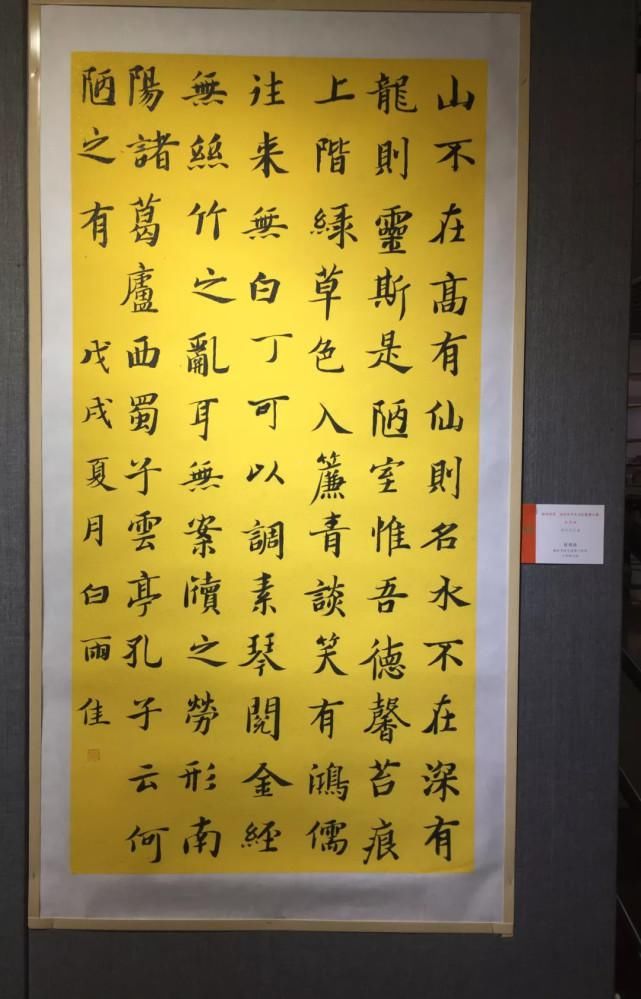 山不在高有仙則名水不在深有
龍則靈斯是陋室惟吾德馨苔痕
上階緑草色入簾青談笑有鴻儒
往来無白丁可以調素琴閱金經
無絲竹之亂耳無案牘之勞形南
陽諸葛廬西蜀子雲亭孔子云何
陋之有 戊戌夏月白雨佳